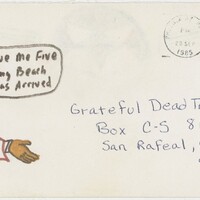 ve Me Five
my Beach
as Arrived
1985
Grateful Dead T
Box C-S 8
San Rafeal,